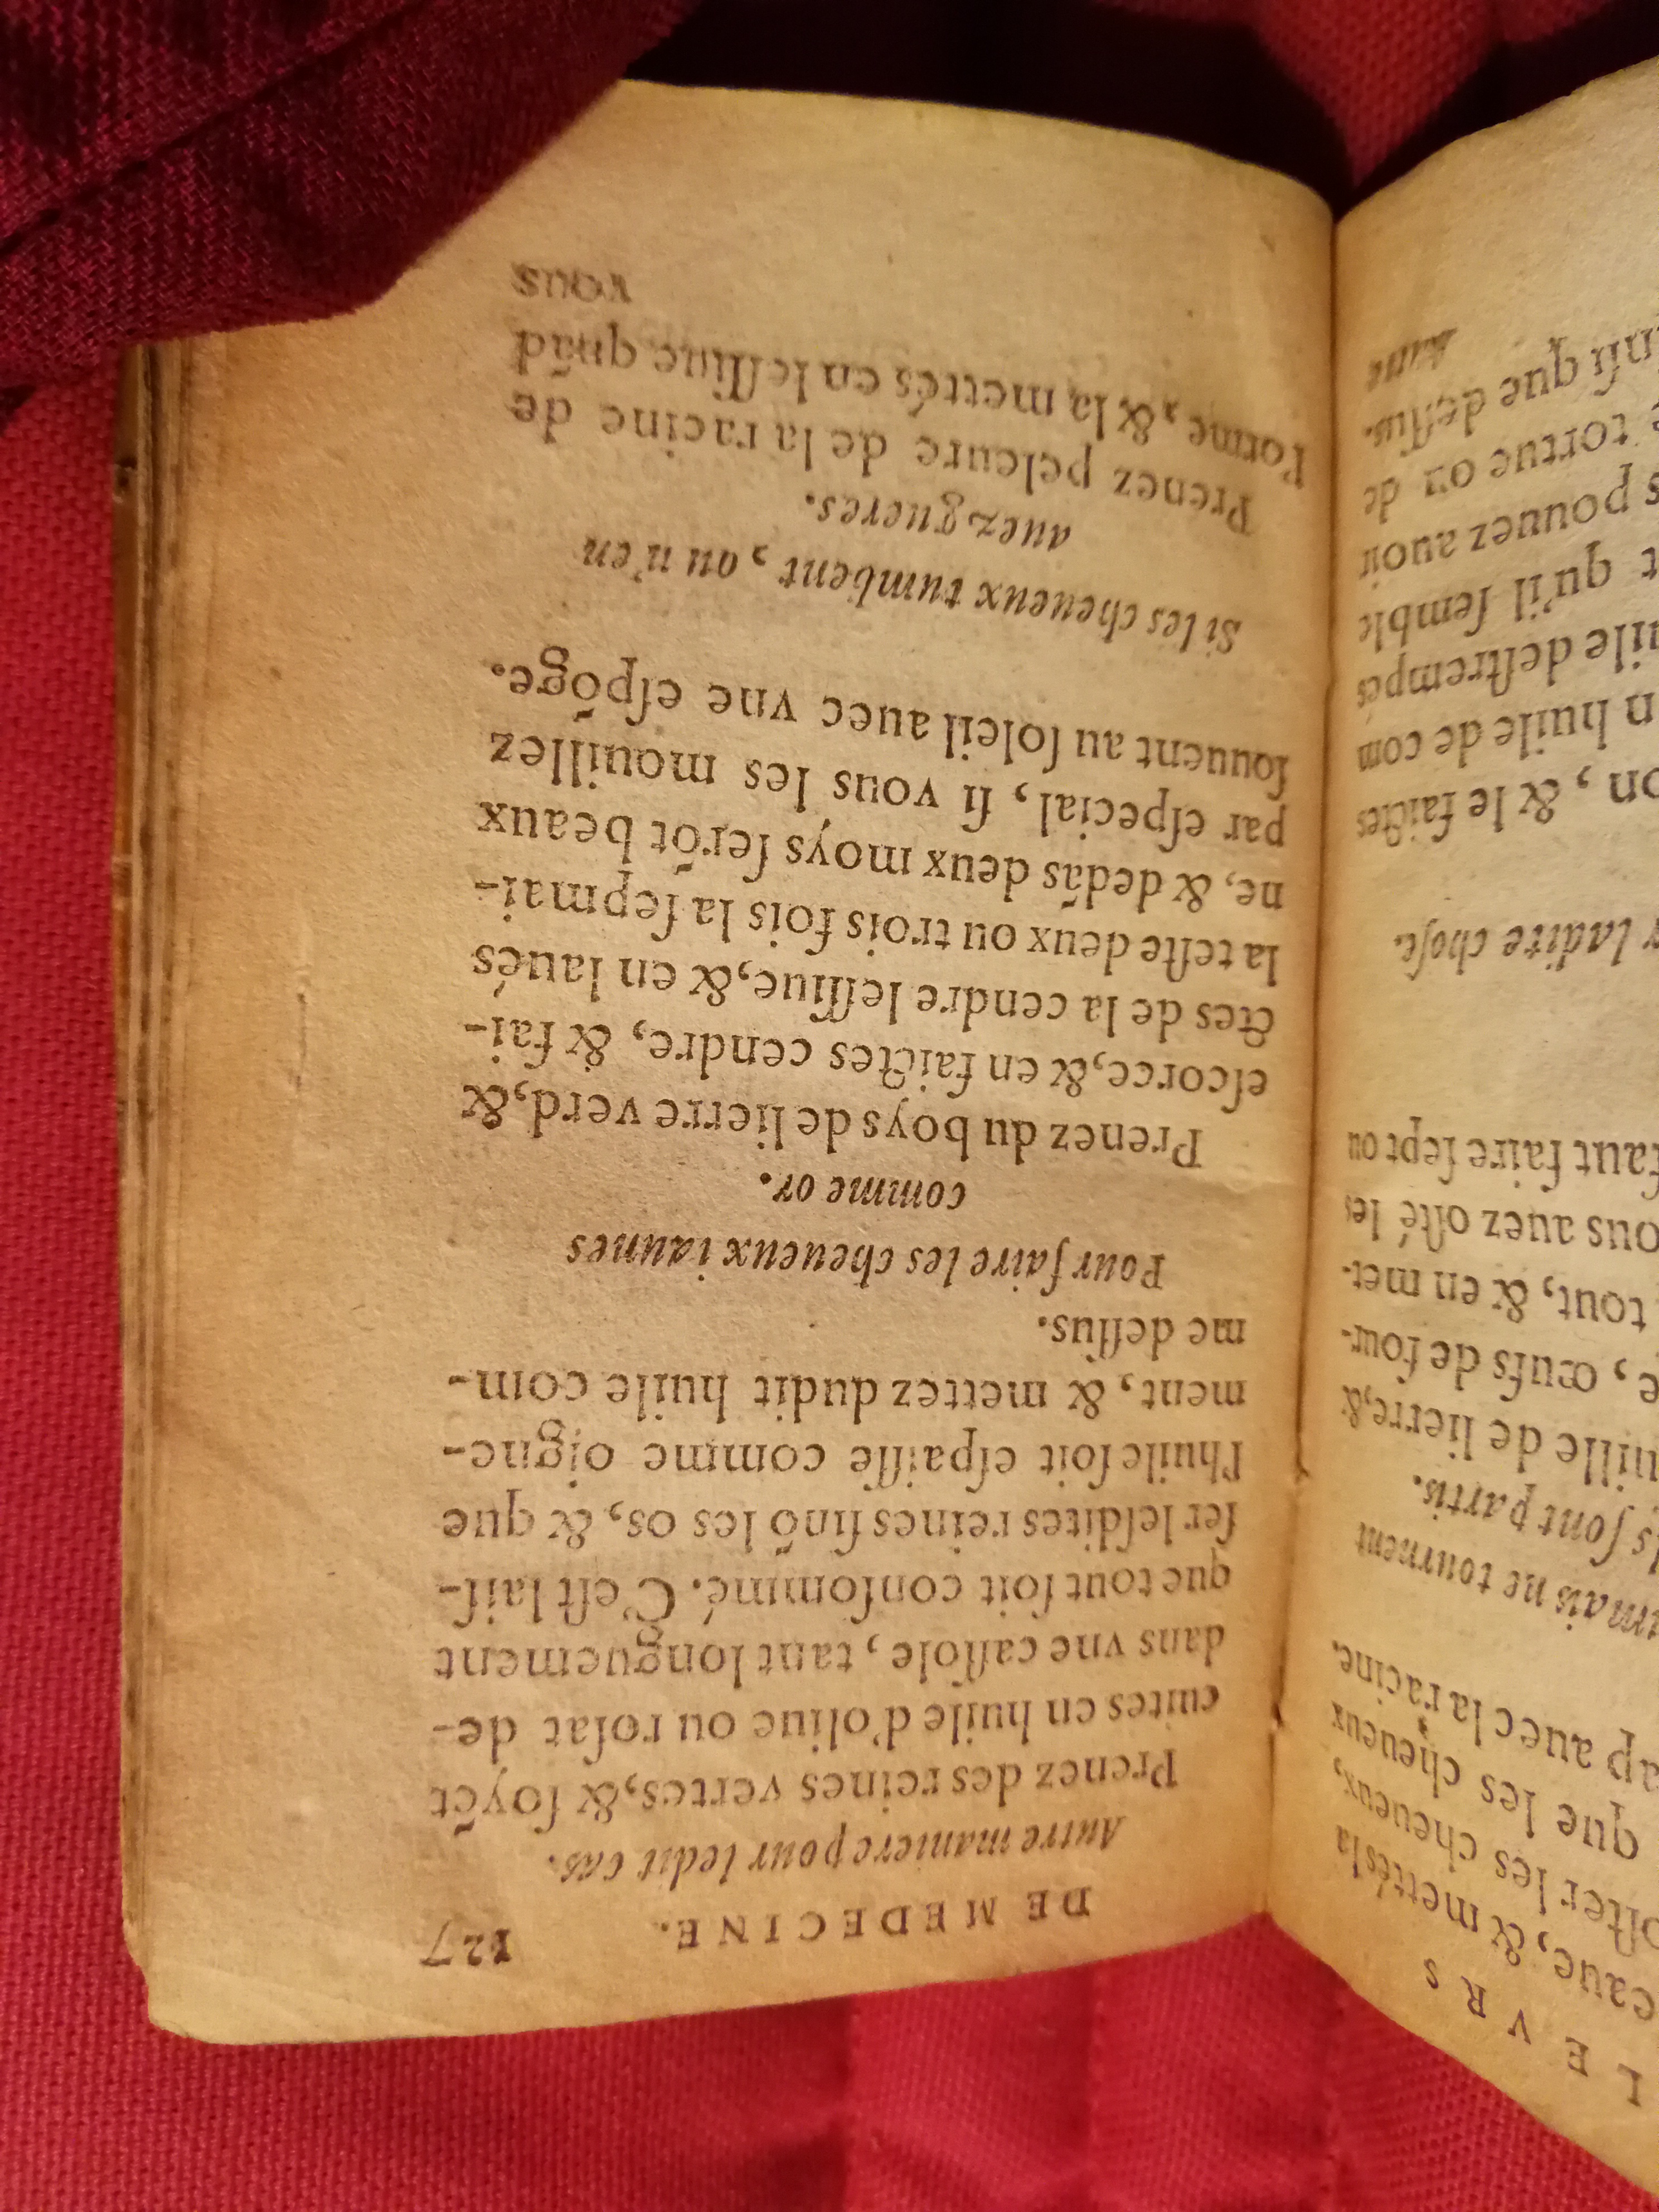 L E V R S
eaue, & mettés la
oſter les cheueux,
que les cheueux
auec la racine.
ne tournent
ſont partis.
de lierre,&
œufs de four-
tout, & en met-
auez oſté les
faut faire ſept ou
ladite choſe.
& le faictes
huile de com
deſtrempés
qu'il ſemble
pouuez auoir
tortue ou de
que deſſus.
Autre
DE MEDECINE. 127
Autre maniere pour ledit cas.
Prenez des reines vertes,& ſoyẽt
cuites en huile d'oliue ou roſat de-
dans vne caſſole, tant longuement
que tout ſoit conſommé. C'eſt laiſ-
ſer leſdites reines ſinõ les os, & que
l'huile ſoit eſpaiſſe comme oigne-
ment, & mettez dudit huile com-
me deſſus.
Pour faire les cheueux iaunes
comme or.
Prenez du boys de lierre verd,&
eſcorce,& en faictes cendre, & fai-
ctes de la cendre leſſiue,& en laués
la teſte deux ou trois fois la ſepmai-
ne, & dedãs deux moys ſerõt beaux
par eſpecial, ſi vous les mouillez
ſouuent au ſoleil auec vne eſpõge.
Si les cheueux tumbent, ou n'en
auez gueres.
Prenez peleure de la racine de
l'orme, & la mettrés en leſſiue quãd
vous